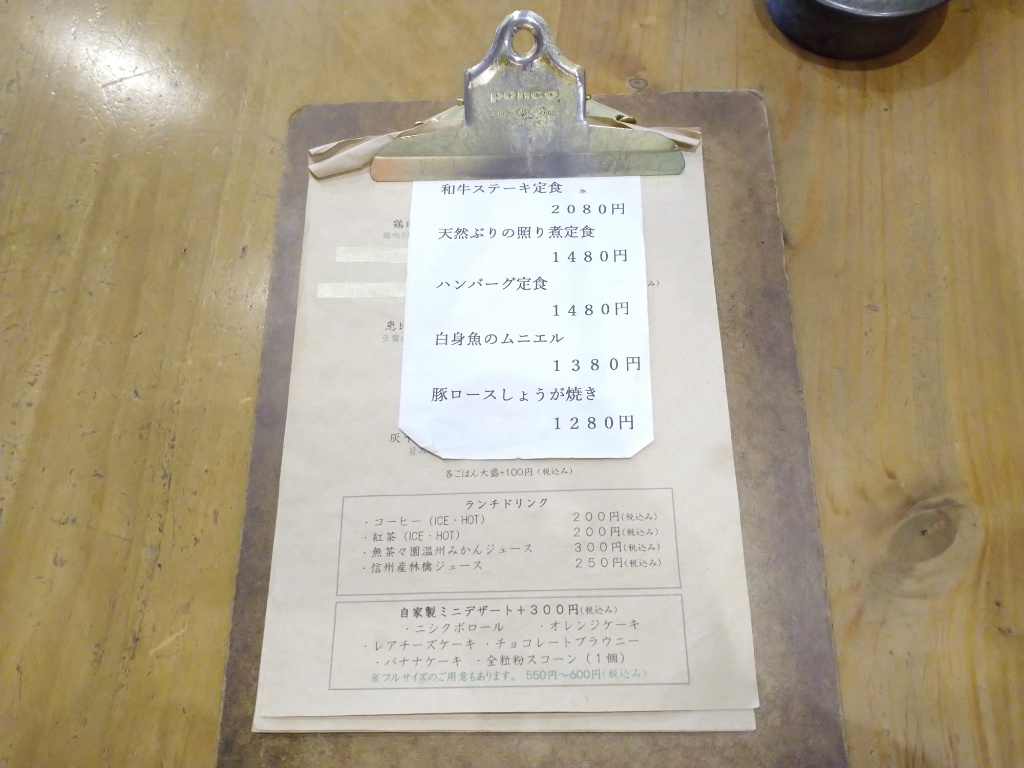 penco
和牛ステーキ定食
2080円
天然ぶりの照り煮定食
1480円
ハンバーグ定食
1480円
白身魚のムニエル
1380円
豚ロースしょうが焼き
1280円
各ごはん大盛+100円(税込み)
ランチドリンク
・コーヒー(ICE・HOT) 200円(税込み)
・紅茶(ICE・HOT) 200円(税込み)
・無茶々園温州みかんジュース 300円(税込み)
・信州産林檎ジュース 250円(税込み)
自家製ミニデザート+300円(税込み)
・ニシクボロール ・オレンジケーキ
・レアチーズケーキ ・チョコレートブラウニー
・バナナケーキ ・全粒粉スコーン(1個)
※フルサイズのご用意もあります。 550円~600円(税込み)